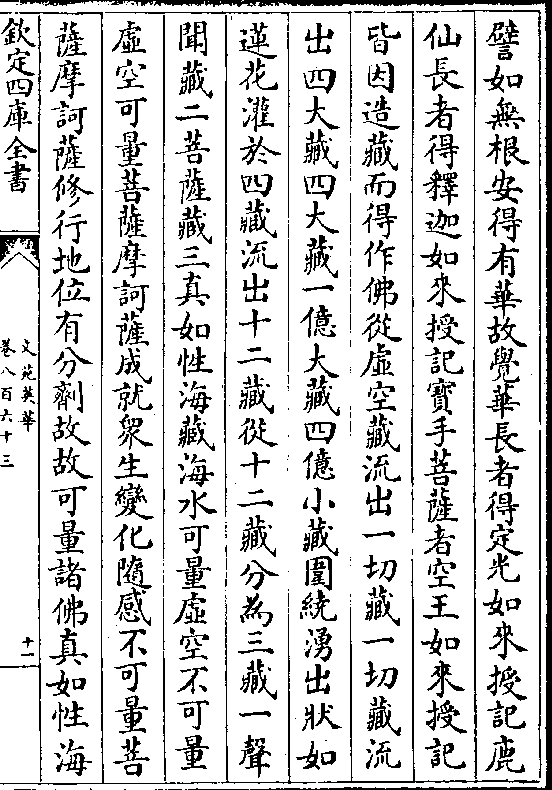 譬如無根安得有華故覺華長者得定光如來授記鹿
仙長者得釋迦如來授記寶手菩薩者空王如來授記
皆因造藏而得作佛從虛空藏流出一切藏一切藏流
出四大藏四大藏一億大藏四億小藏圍繞湧出狀如
蓮花灌於四藏流出十二藏從十二藏分為三藏一聲
聞藏二菩薩藏三真如性海藏海水可量虛空不可量
虛空可量菩薩摩訶薩成就衆生變化隨感不可量菩
薩摩訶薩修行地位有分劑故故可量諸佛真如性海
欽定四庫全書
文苑英華
卷八百六十三
十一